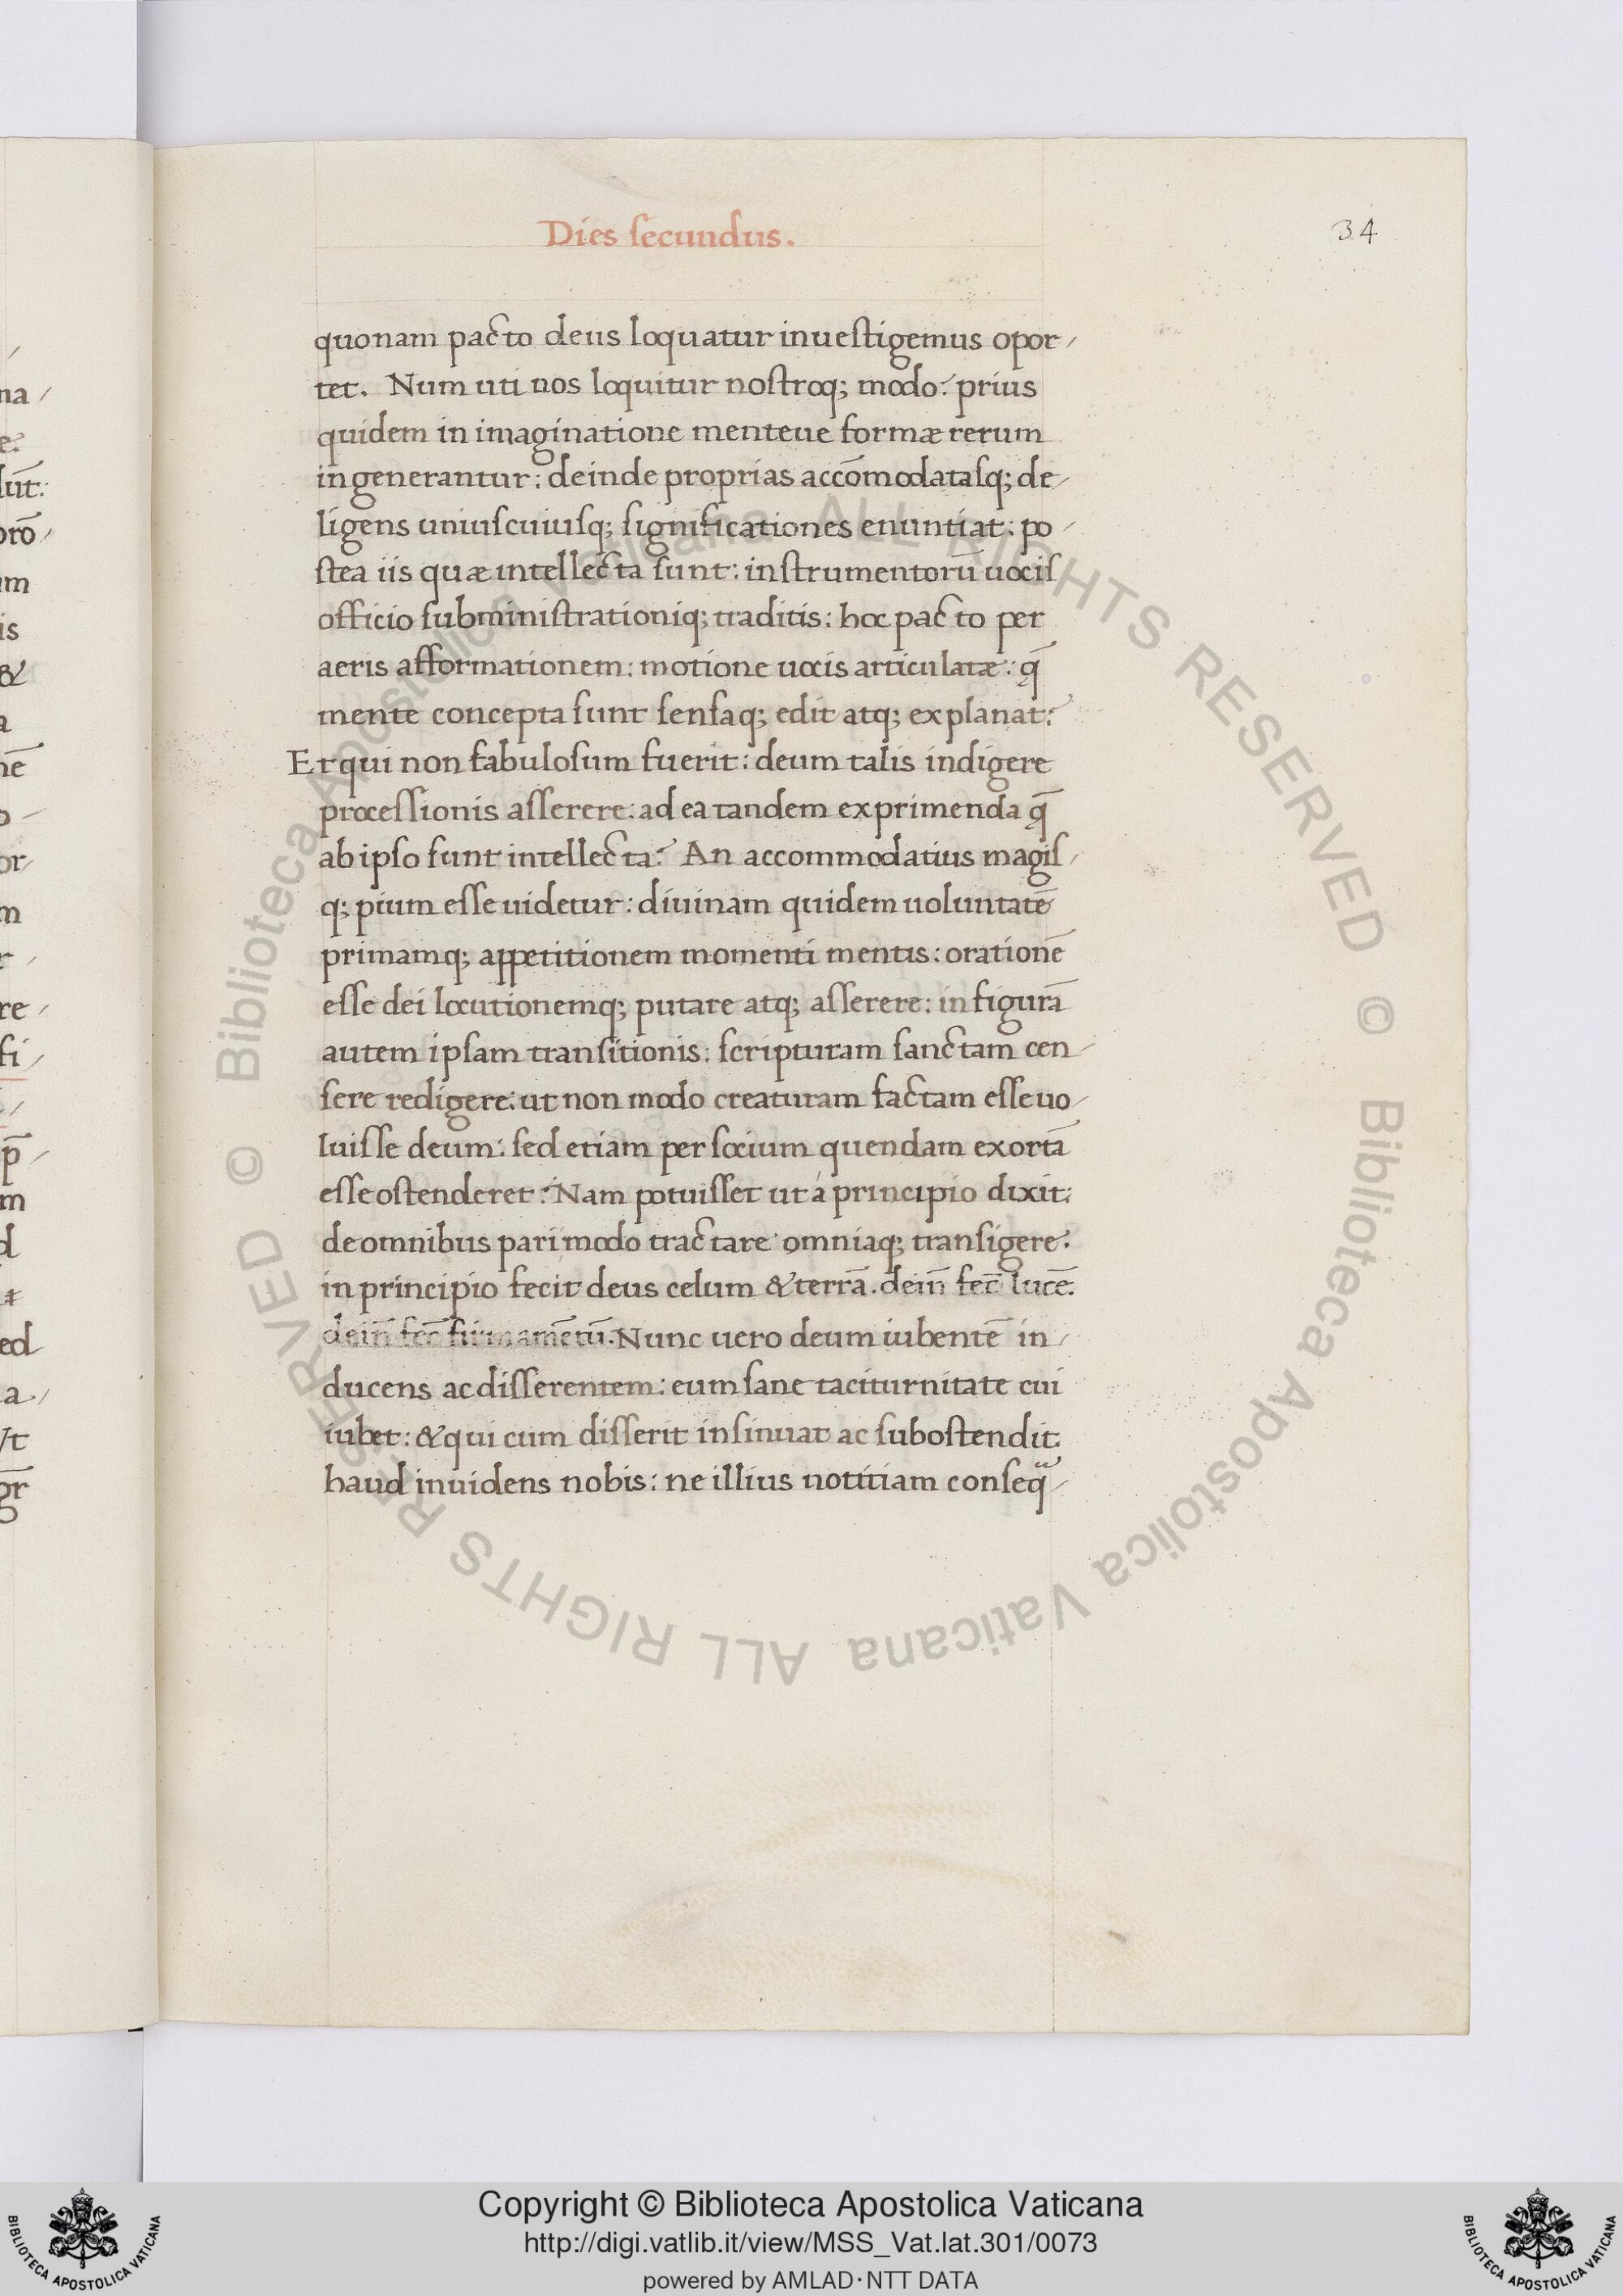 Dies secundus.
34
quonam pacto deus loquatur inuestigemus opor/
tet. Num uti nos loquitur nostroq; modo? prius
quidem in imaginatione menteue formæ rerum
ingenerantur: deinde proprias accōmodatasq; de/
ligens uniuscuiusq; significationes enuntiat: po/
stea iis quæ intellecta sunt: instrumentorū uocis
officio subministrationiq; traditis: hoc pacto per
aeris afformationem: motione uocis articulatæ: q̄
mente concepta sunt sensaq; edit atq; explanat?
Et qui non fabulosum fuerit: deum talis indigere
processionis asserere: ad ea tandem exprimenda q̄
ab ipso sunt intellecta? An accommodatius magis/
q; pium esse uidetur: diuinam quidem uoluntatē
primamq; appetitionem momenti mentis: orationē
esse dei locutionemq; putare atq; asserere: in figurā
autem ipsam transitionis: scripturam sanctam cen/
sere redigere: ut non modo creaturam factam esse uo/
luisse deum: sed etiam per socium quendam exortā
esse ostenderet? Nam potuisset ut á principio dixit:
de omnibus pari modo tractare omniaq; transigere?
in principio fecit deus celum & terrā. dein̄ fec̄ lucē.
dein̄ fec̄ firmamētū. Nunc uero deum iubentē in/
ducens ac disserentem: eum sane taciturnitate cui
iubet: & qui cum disserit insinuat ac subostendit.
haud inuidens nobis: ne illius notitiam conseq̃/
na/
e?
lūt:
prō/
um
is
&
a
nē
o-
or/
m
r/
re/
fi/
p̄/
m
d
ed
a/
Vt
gr̄
© Biblioteca Apostolica Vaticana ALL RIGHTS RESERVED
© Biblioteca Apostolica Vaticana ALL RIGHTS RESERVED
BIBLIOTECA APOSTOLICA VATICANA
Copyright © Biblioteca Apostolica Vaticana
http://digi.vatlib.it/view/MSS_Vat.lat.301/0073
powered by AMLAD·NTT DATA
BIBLIOTECA APOSTOLICA VATICANA